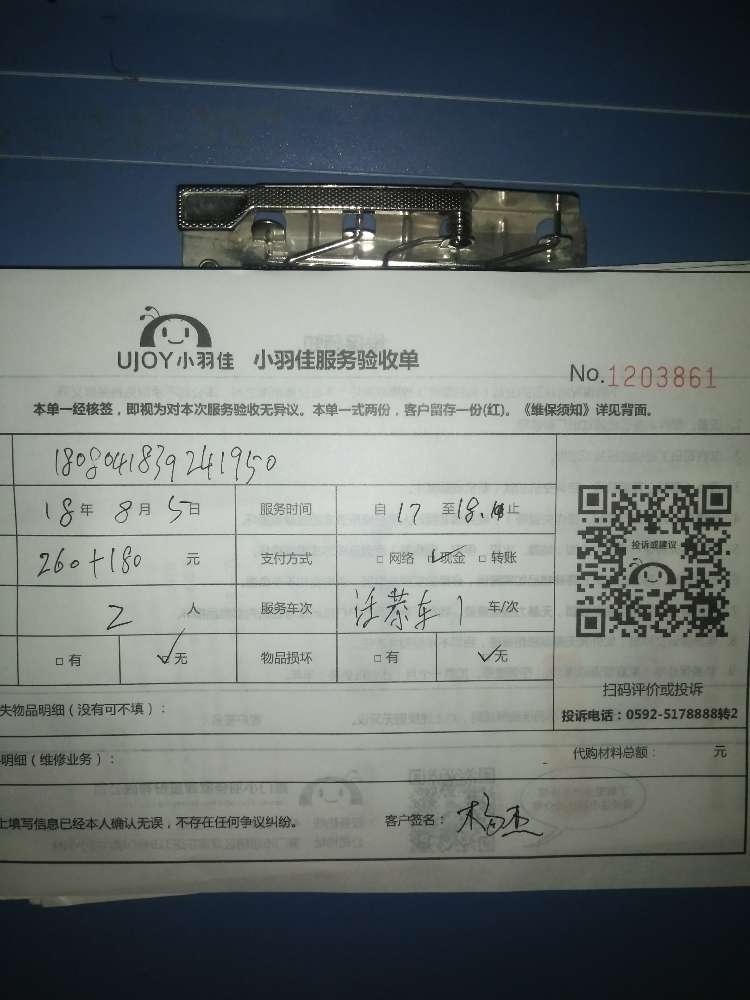 UJOY小羽佳 小羽佳服务验收单
No.1203861
本单一经核签，即视为对本次服务验收无异议。本单一式两份，客户留存一份(红)。《维保须知》详见背面。
1808041839241950
18年 8月 5日 服务时间 自17至18.止
260+180 元 支付方式 □网络 ☑现金 □转账
2 人 服务车次 车 1 车/次
□有 ☑无 物品损坏 □有 ☑无
投诉或建议
扫码评价或投诉
投诉电话：0592-5178888转2
失物品明细（没有可不填）：
明细（维修业务）： 代购材料总额： 元
上填写信息已经本人确认无误，不存在任何争议纠纷。 客户签名：杨杰